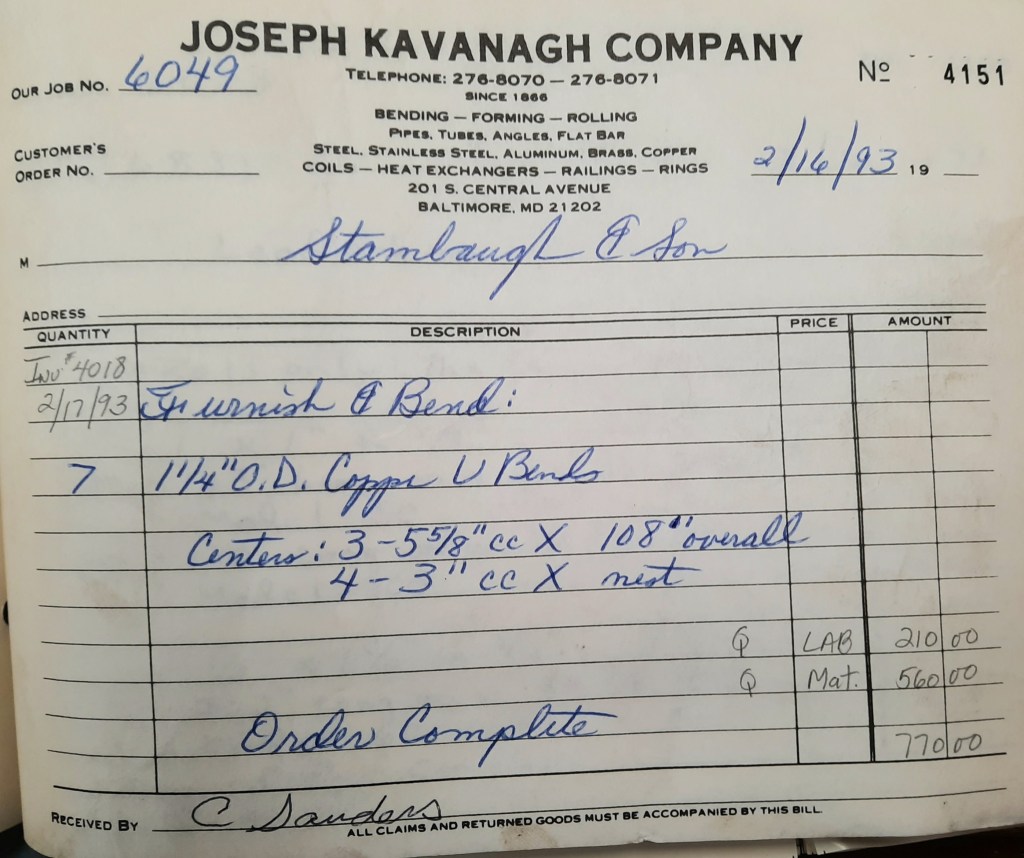 JOSEPH KAVANAGH COMPANY
TELEPHONE: 276-8070 — 276-8071
Nº 4151
OUR JOB NO. 6049
SINCE 1866
BENDING — FORMING — ROLLING
PIPES, TUBES, ANGLES, FLAT BAR
STEEL, STAINLESS STEEL, ALUMINUM, BRASS, COPPER
CUSTOMER'S
ORDER NO.
COILS — HEAT EXCHANGERS — RAILINGS — RINGS
2/16/93 19
201 S. CENTRAL AVENUE
BALTIMORE, MD 21202
M Stambaugh & Son
ADDRESS
QUANTITY DESCRIPTION PRICE AMOUNT
Inv # 4018
2/17/93 Furnish & Bend:
7 1 1/4" O.D. Copper U Bends
Centers: 3 - 5 5/8" cc X 108" overall
4 - 3" cc X nest
Q LAB 210 00
Q Mat. 560 00
Order Complete
770 00
RECEIVED BY C Sanders
ALL CLAIMS AND RETURNED GOODS MUST BE ACCOMPANIED BY THIS BILL